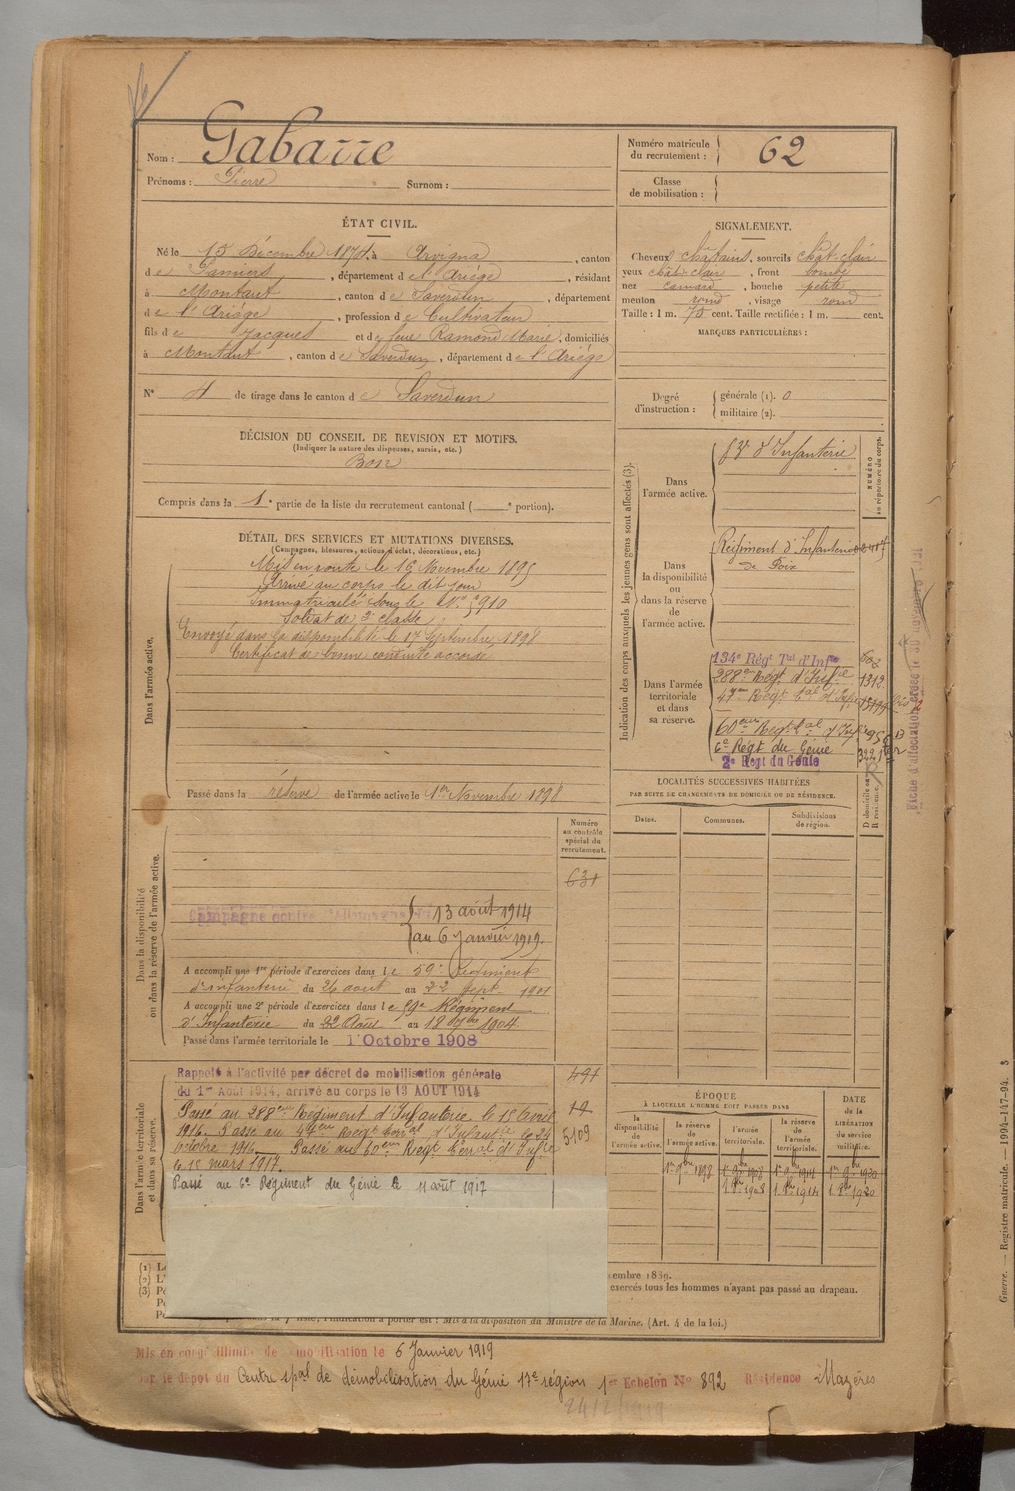 Nom : Gabarre
Prénoms : Pierre Surnom :
Numéro matricule du recrutement : 62
Classe de mobilisation :
ÉTAT CIVIL.
Né le 15 Décembre 1874, à Arvigna, canton
de Pamiers, département de l'Ariège, résidant
à Montaut, canton de Saverdun, département
de l'Ariège, profession de Cultivateur
fils de Jacques et de feue Ramond Marie, domiciliés
à Montaut, canton de Saverdun, département de l'Ariège
N° 4 de tirage dans le canton de Saverdun
SIGNALEMENT.
Cheveux châtains, sourcils chât. clair
yeux chât. clair, front bombé
nez camard, bouche petite
menton rond, visage rond
Taille : 1 m. 75 cent. Taille rectifiée : 1 m. cent.
MARQUES PARTICULIÈRES :
Degré d'instruction : générale (1). 0
militaire (2).
DÉCISION DU CONSEIL DE REVISION ET MOTIFS.
(Indiquer la nature des dispenses, sursis, etc.)
Bon
Compris dans la 1e partie de la liste du recrutement cantonal ( e portion).
DÉTAIL DES SERVICES ET MUTATIONS DIVERSES.
(Campagnes, blessures, actions d'éclat, décorations, etc.)
Dans l'armée active.
Mis en route le 16 Novembre 1895
Arrivé au corps le dit jour
Immatriculé sous le N°
Soldat de 2e classe
Envoyé dans la disponibilité le 17 Septembre 1898
Certificat de bonne conduite accordé
Passé dans la réserve de l'armée active le 1er Novembre 1898
Indication des corps auxquels les jeunes gens sont affectés (3).
NUMÉRO au répertoire du corps.
Dans l'armée active.
d'Infanterie
Dans la disponibilité ou dans la réserve de l'armée active.
Régiment d'Infanterie
de Foix
Dans l'armée territoriale et dans sa réserve.
134e Régt Tal d'Inf
288e Régt d'Infie 1312
60eme Régt
6e Régt du Génie
2e Régt du Génie
LOCALITÉS SUCCESSIVES HABITÉES
PAR SUITE DE CHANGEMENTS DE DOMICILE OU DE RÉSIDENCE.
Dates. Communes. Subdivisions de région. D domicile ou R résidence.
Dans la disponibilité ou dans la réserve de l'armée active.
Numéro au contrôle spécial du recrutement.
631
Campagne contre l'Allemagne
13 août 1914
au 6 Janvier 1919.
A accompli une 1re période d'exercices dans le 59e Régiment
d'infanterie du 26 août au 22 Sept 1901
A accompli une 2e période d'exercices dans le 59e Régiment
d'Infanterie du 22 Août au 18 7bre 1904
Passé dans l'armée territoriale le 1 Octobre 1908
Dans l'armée territoriale et dans sa réserve.
Rappelé à l'activité par décret de mobilisation générale
du 1er Août 1914, arrivé au corps le 13 AOUT 1914
Passé au 288eme Régiment d'Infanterie le 15 Avril
1916. Passé au 47eme Régt terral d'Infanterie le 24
octobre 1916. Passé au 60eme Régt terral d'Infie
le 15 mars 1917.
Passé au 6e Régiment du Génie le 11 août 1917
491
5109
ÉPOQUE
À LAQUELLE L'HOMME DOIT PASSER DANS
la disponibilité de l'armée active. la réserve de l'armée active. l'armée territoriale. la réserve de l'armée territoriale.
DATE de la LIBÉRATION du service militaire.
1er 9bre 1898 1er 9bre 1908 1er 9bre 1914 1er 9bre 1920
1 8bre 1908 1 8bre 1914 1 8bre 1920
(1)
(2)
(3)
cembre 1889.
exercés tous les hommes n'ayant pas passé au drapeau.
l'indication à porter est : Mis à la disposition du Ministre de la Marine. (Art. 4 de la loi.)
Mis en congé illimité de démobilisation le 6 Janvier 1919
par le dépot du Centre spal de démobilisation du Génie 17e région 1er Echelon N° 892 Résidence Mazères
Fiche d'affectation
Guerre. — Registre matricule. — 1994-147-94.